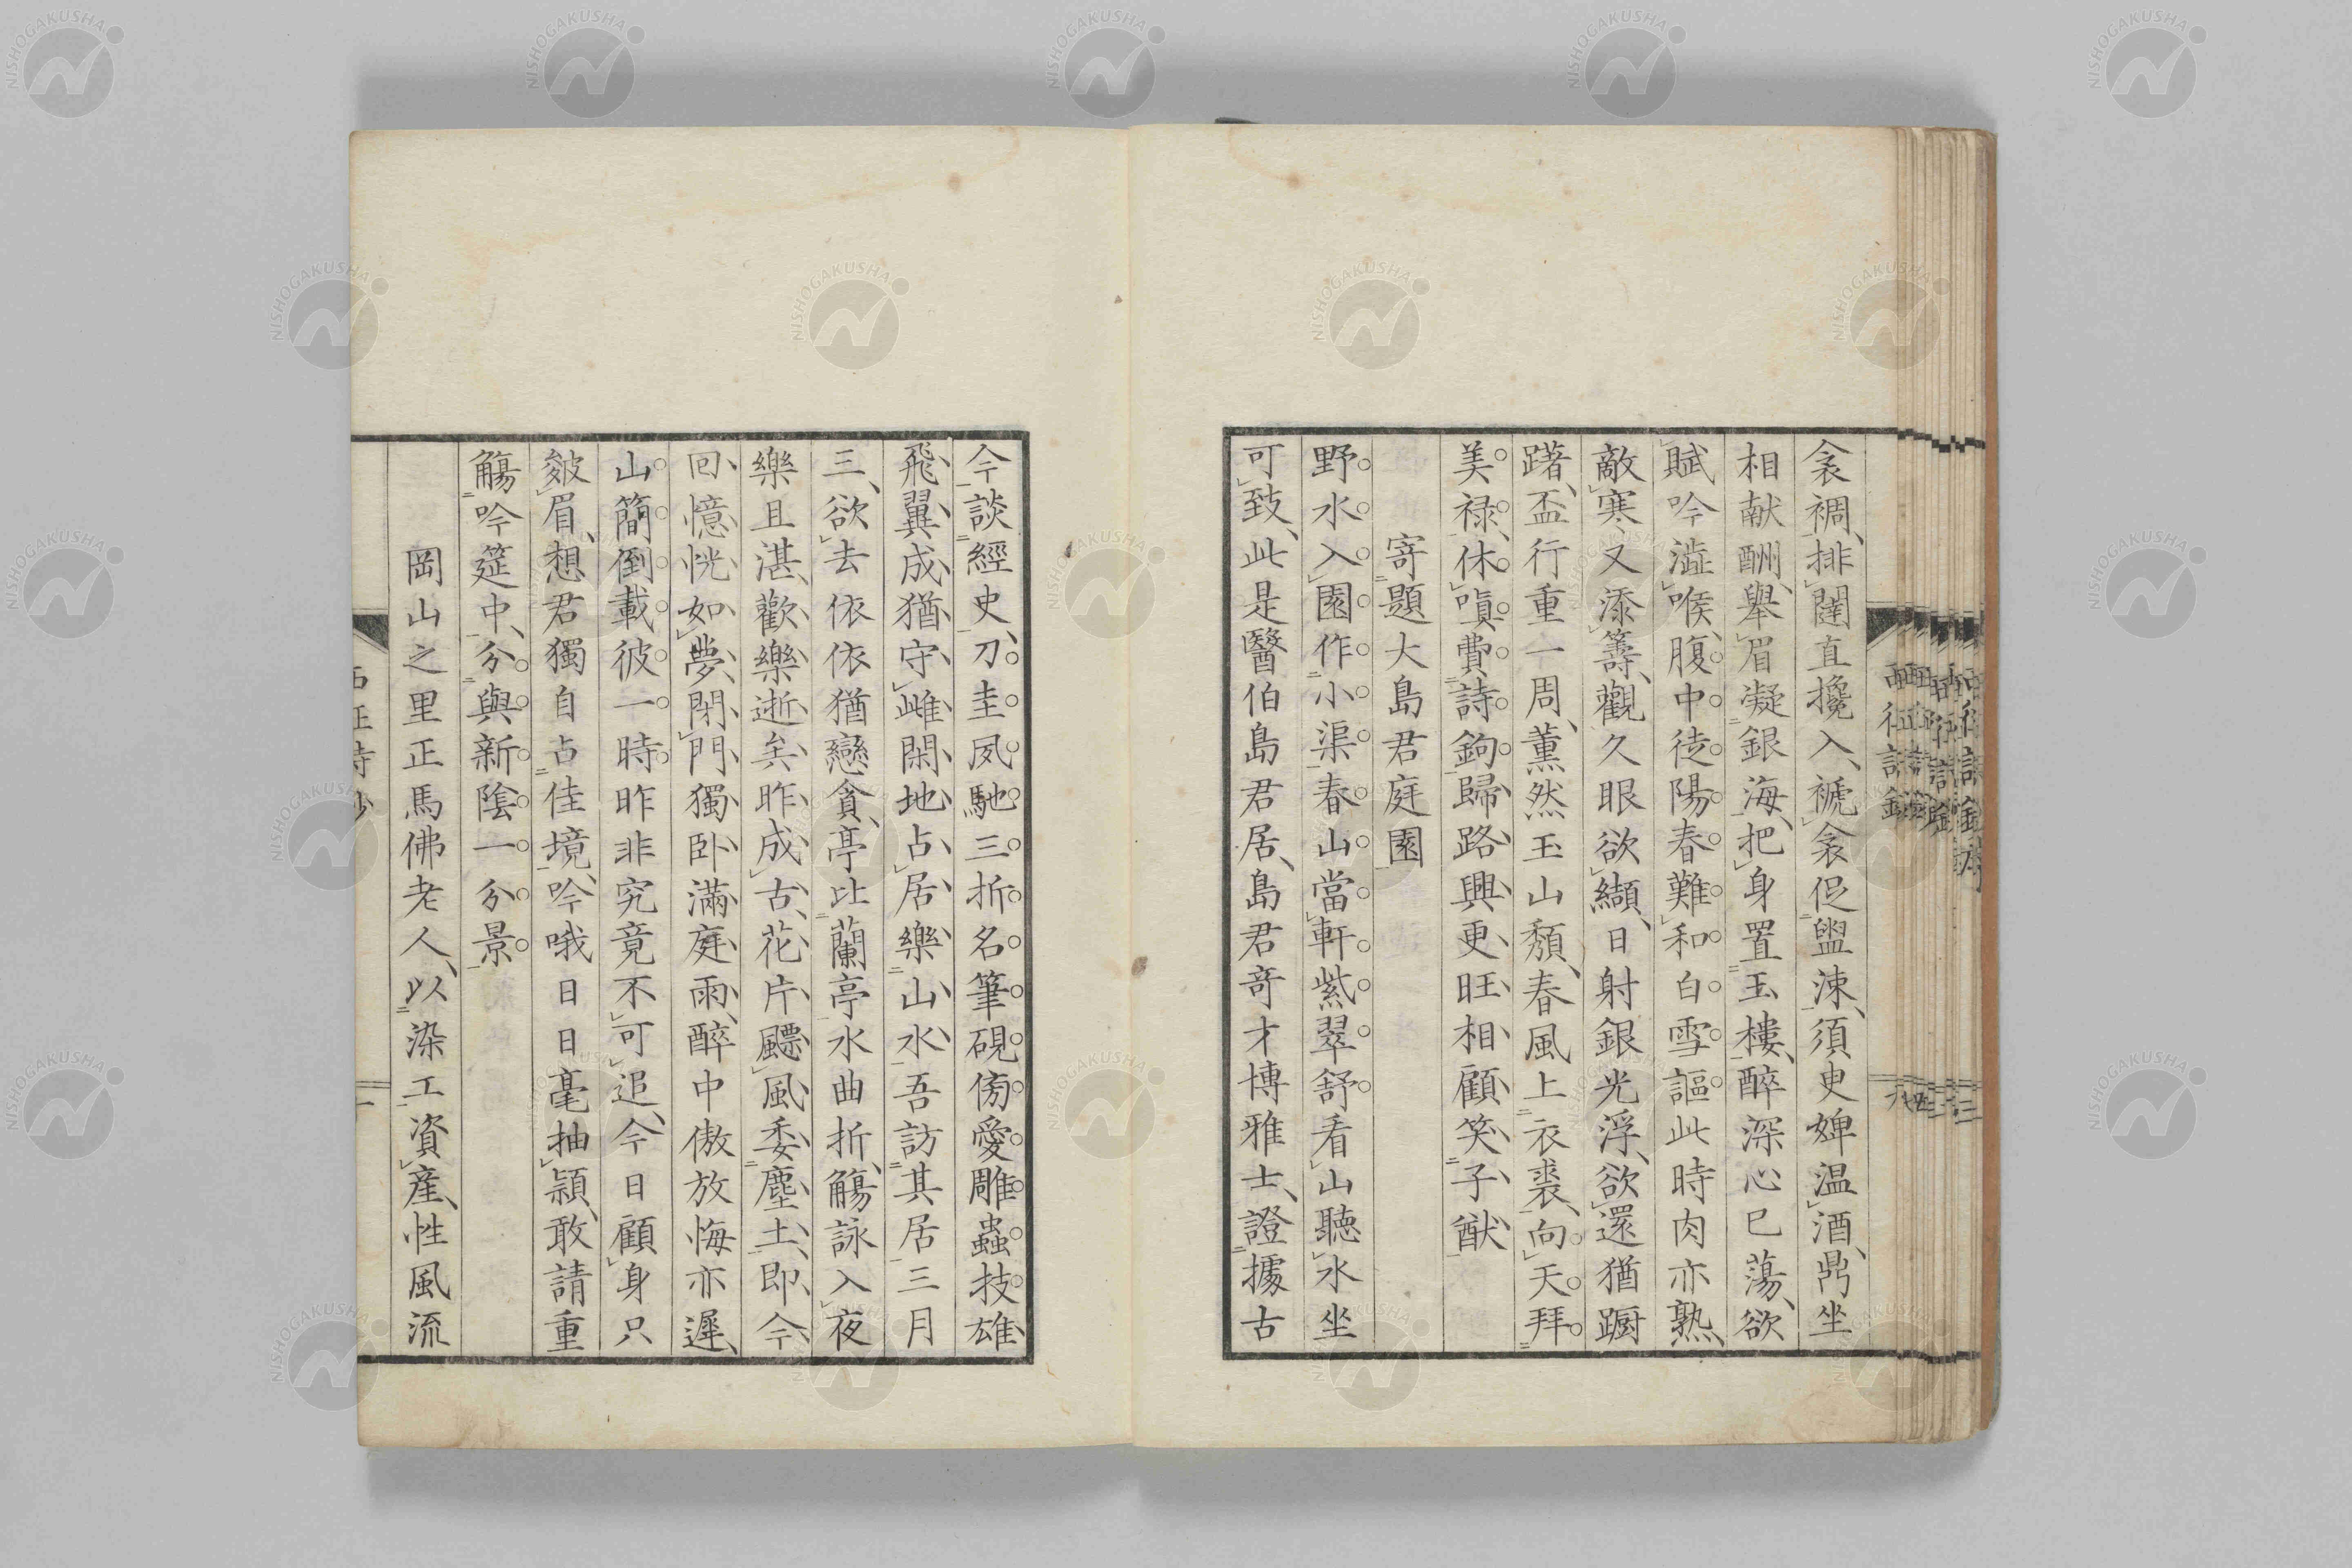 衾裯排闥直攙入褫衾促盥湅須臾婢温酒鼎坐
相献酬舉眉凝銀海把身置玉樓醉深心已蕩欲
賦吟澁喉腹中徒陽春難和白雪謳此時肉亦熟
敵寒又添籌觀久眼欲纈日射銀光浮欲還猶蹰
躇盃行重一周薫然玉山頽春風上衣裘向天拜
美禄休嗔費詩鉤歸路興更旺相顧笑子猷
寄題大島君庭園
野水入園作小渠春山當軒紫翠舒看山聽水坐
可致此是醫伯島君居島君奇才博雅士證據古
今談經史刀圭夙馳三折名筆硯傍愛雕蟲技雄
飛翼成猶守雌閑地占居樂山水吾訪其居三月
三欲去依依猶戀貪亭比蘭亭水曲折觴詠入夜
樂且湛歡樂逝矣昨成古花片飃風委塵土即今
回憶恍如夢閉門獨卧滿庭雨醉中傲放悔亦遲
山簡倒載彼一時昨非究竟不可追今日顧身只
皴眉想君獨自占佳境吟哦日日毫抽穎敢請重
觴吟筵中分與新陰一分景
岡山之里正馬佛老人以染工資産性風流
NISHOGAKUSHA